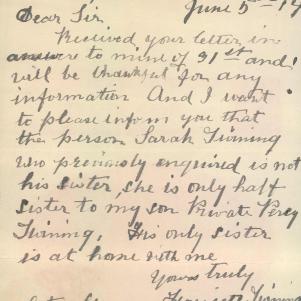 June 5th 19
Dear Sir.
Received your letter in
answere to mine of 31st and
will be thankful for any
information And I want
to please inform you that
the person Sarah Twining
who previously enquired is not
his sister, she is only half
sister to my son Private Percy
Twining, His only sister
is at home with me
Yours truly
Twining